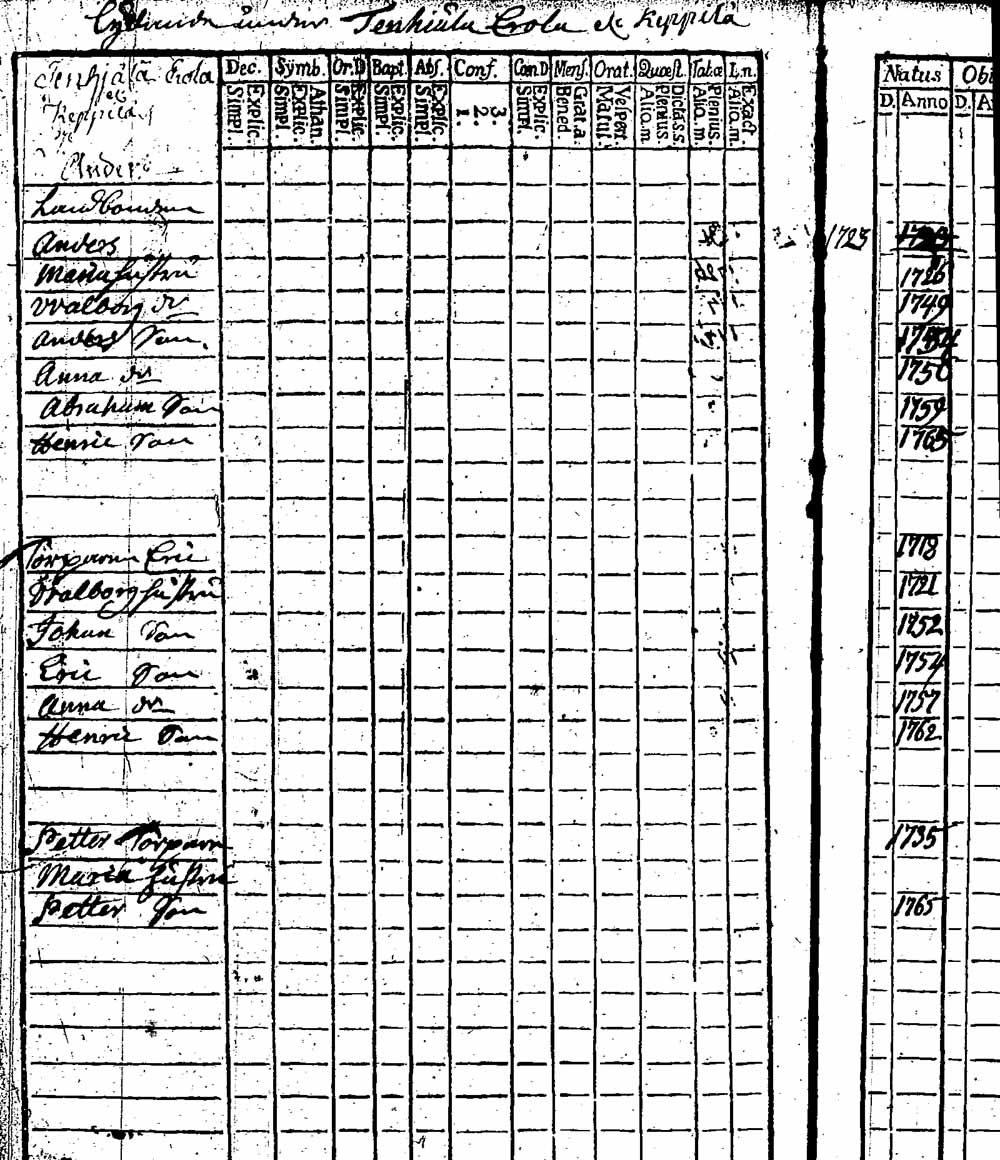 Lydande under Tenhiälä Erola et Keppilä
Tenhjälä Erola Dec. Symb. Or.D Bapt. Abs. Conf. Cœn.D Mens. Orat. Quæst. Tab.æ L.n. Natus Obi
et Keppilä Simpl. Explic. Simpl. Explic. Athan. Simpl. Explic. Simpl. Explic. Simpl. Explic. 1. 2. 3. Simpl. Explic. Bened. Grat.a. Matut. Vespert. Alio.m. Plenius. Dicta s.s. Alio.m. Plenius. Alio.m. Exact D. Anno D. A
Anders
Landbonden
Anders 1723
Maria hustru 1726
Walborg dr 1749
Anders Son.
Anna dr 1756
Abraham Son 1759
Henric Son 1765
Torparen Eric 1718
Walborg hustru 1721
Johan Son 1752
Eric Son 1754
Anna dr 1757
Henric Son 1762
Petter Torparen 1735
Maria hustru
Petter Son 1765